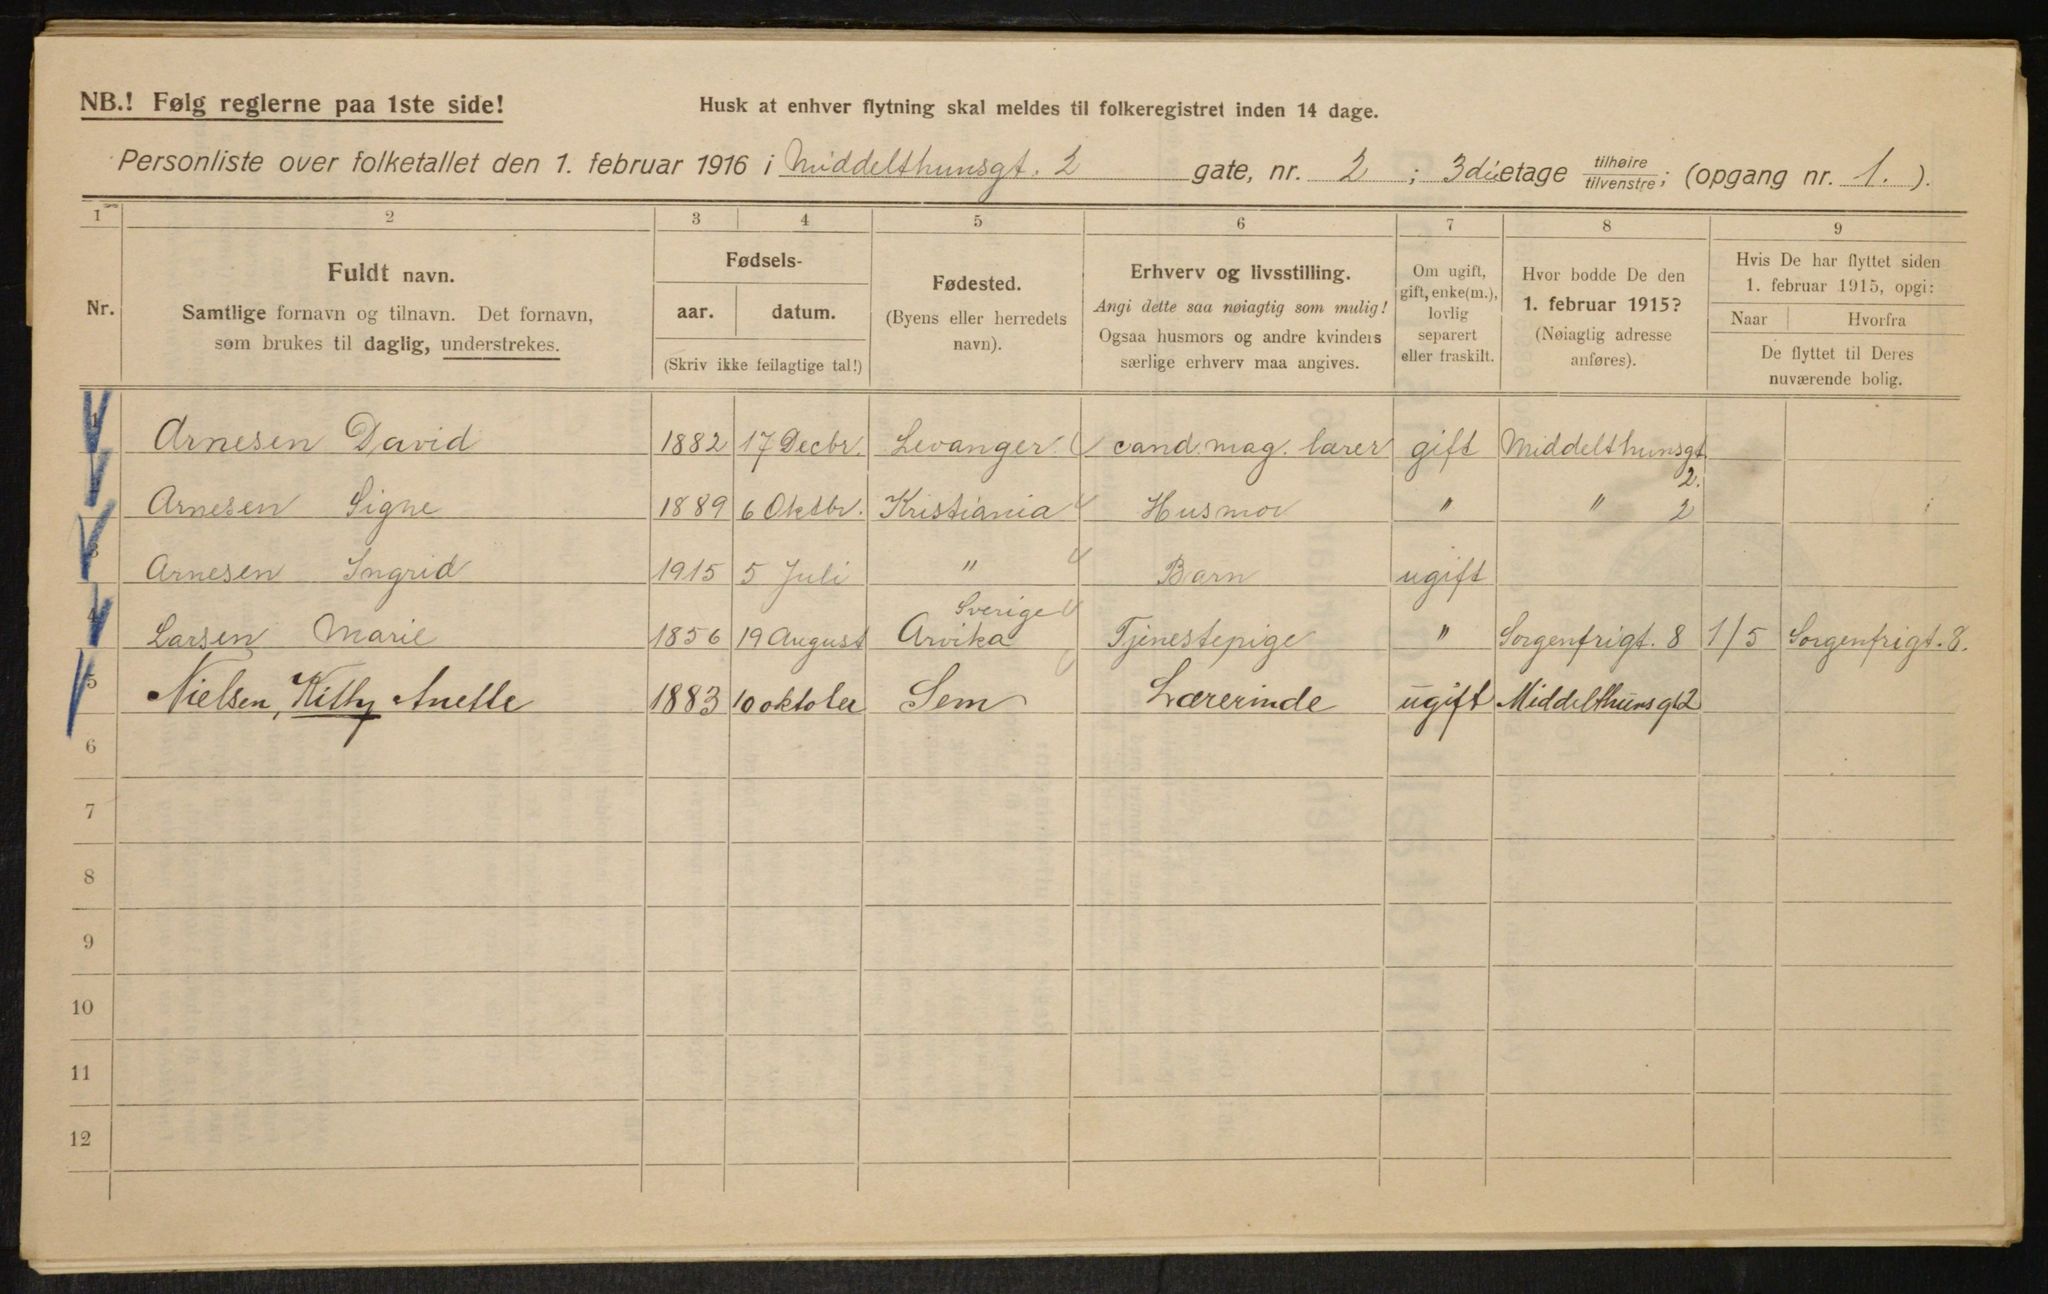 NB.! Følg reglerne paa 1ste side!
Husk at enhver flytning skal meldes til folkeregistret inden 14 dage.
Personliste over folketallet den 1. februar 1916 i Middelthunsgt. 2 gate, nr. 2 ; 3die etage tilhøire/tilvenstre; (opgang nr. 1. ).
1 2 3 4 5 6 7 8 9
Nr.
Fuldt navn.
Samtlige fornavn og tilnavn. Det fornavn,
som brukes til daglig, understrekes.
Fødsels-
aar. datum.
(Skriv ikke feilagtige tal!)
Fødested.
(Byens eller herredets
navn).
Erhverv og livsstilling.
Angi dette saa nøiagtig som mulig!
Ogsaa husmors og andre kvinders
særlige erhverv maa angives.
Om ugift,
gift, enke(m.),
lovlig
separert
eller fraskilt.
Hvor bodde De den
1. februar 1915?
(Nøiagtig adresse
anføres).
Hvis De har flyttet siden
1. februar 1915, opgi:
Naar Hvorfra
De flyttet til Deres
nuværende bolig.
1 Arnesen David 1882 17 Decbr. Levanger cand. mag. lærer gift Middelthunsgt. 2.
2 Arnesen Signe 1889 6 Oktbr. Kristiania Husmor " " 2
3 Arnesen Ingrid 1915 5 Juli " Barn ugift
4 Larsen Marie 1856 19 August Arvika Sverige Tjenestepige " Sorgenfrigt. 8 1/5 Sorgenfrigt. 8.
5 Nielsen, Kitty Anette 1883 10 oktober Sem Lærerinde ugift Middelthunsgt 2
6
7
8
9
10
11
12